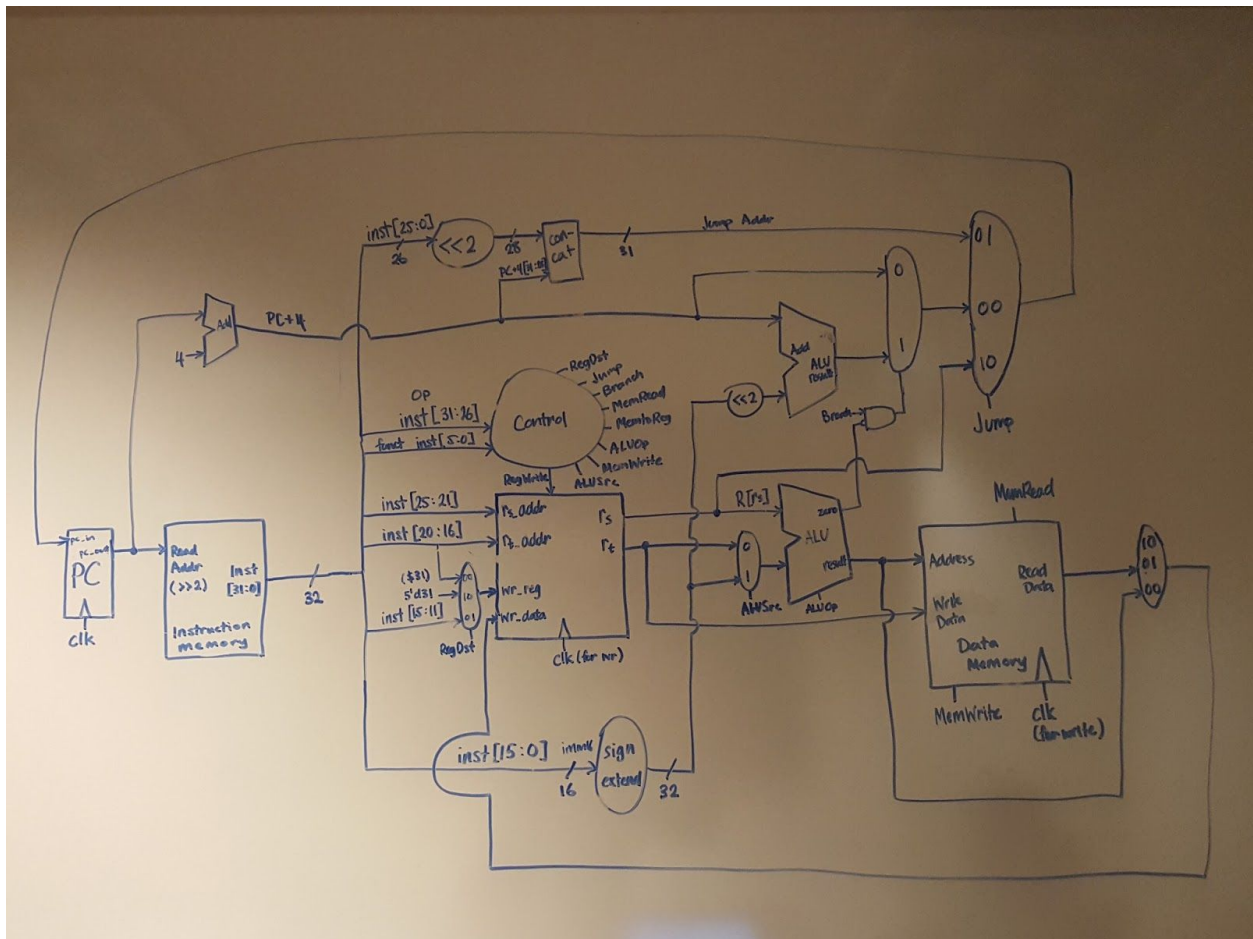 inst[25:0]
26
<<2
28
con-
cat
31
Jump Addr
01
00
10
Jump
0
1
4
Add
PC+4
Add
ALU
result
<<2
Branch
OP
inst[31:26]
funct inst[5:0]
Control
RegDst
Jump
Branch
MemRead
MemtoReg
ALUOp
MemWrite
ALUSrc
RegWrite
inst[25:21]
inst[20:16]
($31)
5'd31
inst[15:11]
00
10
01
RegDst
rs_addr
rt_addr
wr_reg
wr_data
rs
rt
clk (for wr)
R[rs]
0
1
ALUSrc
zero
ALU
result
ALUOp
MemRead
Address
Write
Data
Read
Data
Data
Memory
MemWrite
clk
(for write)
10
01
00
pc_in
pc_out
PC
clk
Read
Addr
(>>2)
Inst
[31:0]
Instruction
memory
32
inst[15:0]
16
sign
extend
32